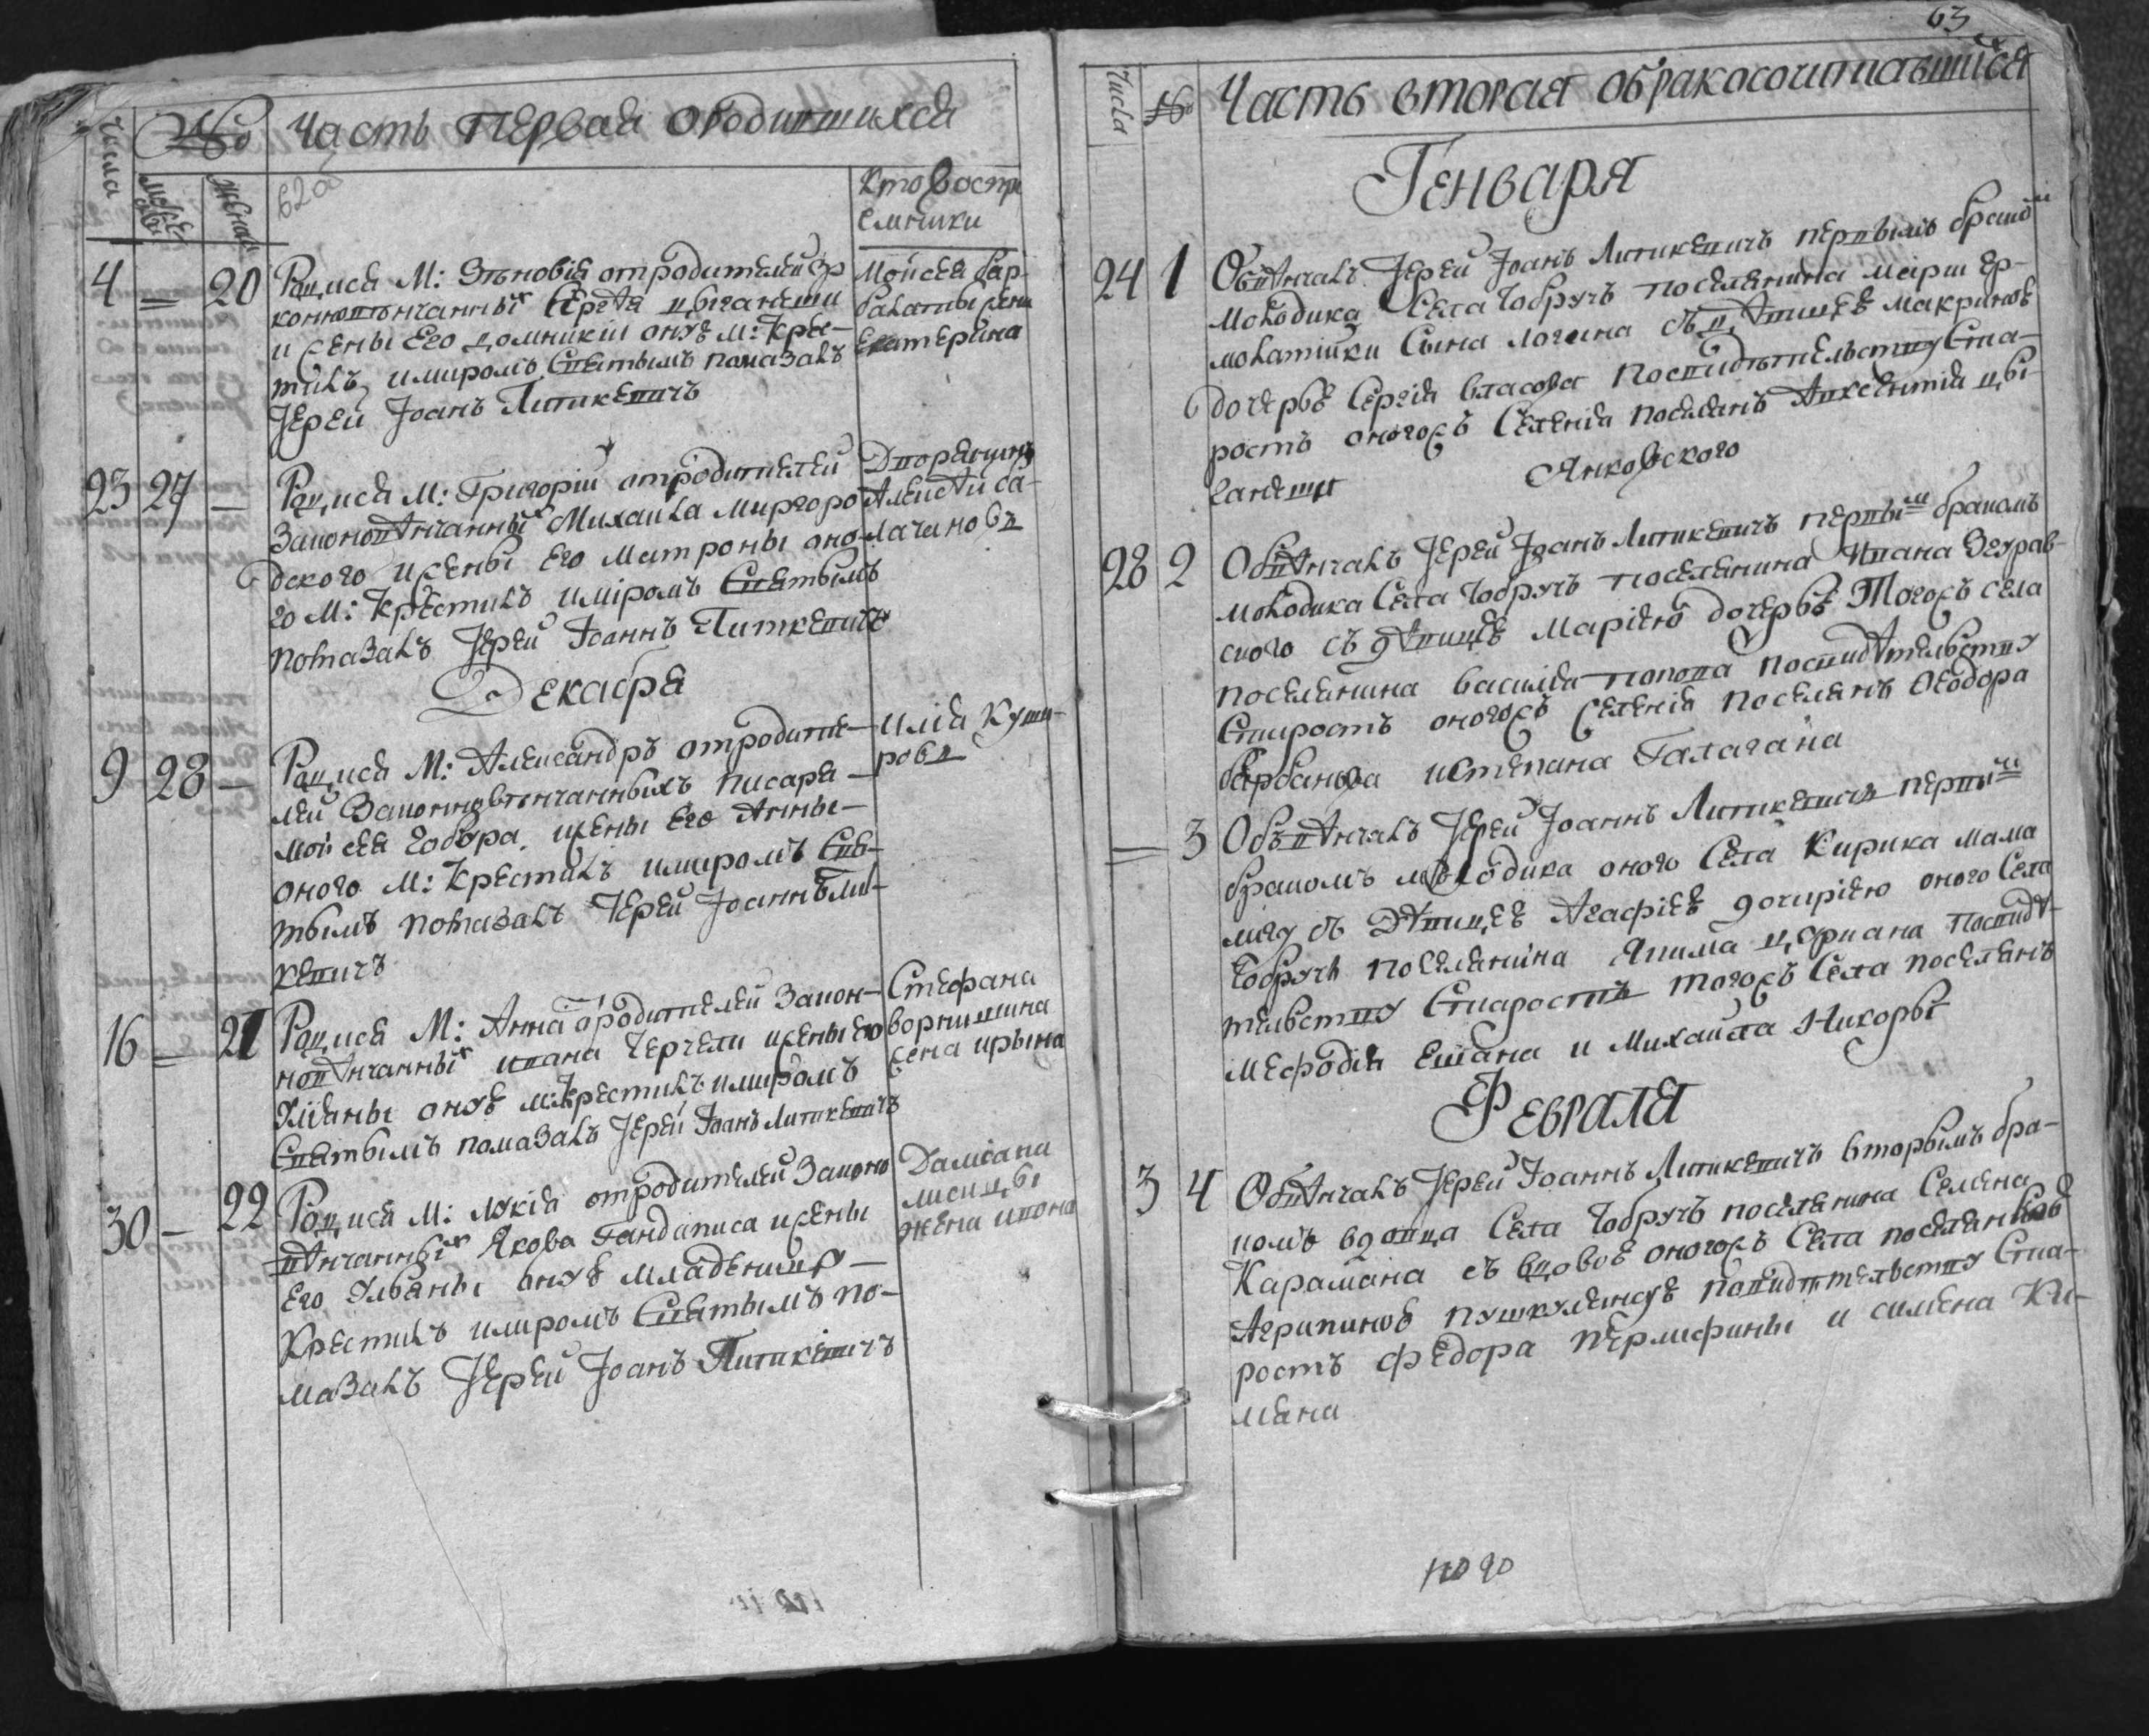 Числа № Часть первая о родившихся
Мужес Женска 62об
Кто воспри
емники
4 — 20 Родися М: Зѣновія от родителей за
коновѣнчанныхъ Сергѣя Цыганеши
и жены его Домникіи онуѣ м: крес-
тилъ и миромъ святымъ помазалъ
Іерей Іоанъ Литкевичъ
Мойсея Бар-
балаты жена
Екатерина
23 27 — Родися М: Григорій от родителей
законовѣнчанныхъ Михаила Миргоро
дского и жены его Матроны оно
го М: крестилъ и міромъ святымъ
помазалъ Іерей Іоаннъ Литкевичъ
Дворянинъ
Алексѣй са-
лачиновъ
Декабря
9 28 — Родися М: Александръ от родите-
лей законновѣнчанныхъ писаря
мойсея Гобжра, жены его Анны-
оного М: крестилъ и миромъ свя-
тымъ помазалъ Іерей Іоаннъ Лит-
кевичъ
Илія Куш-
ровъ
16 — 21 Родися М: Анна от родителей закон-
новѣнчанныхъ ивана Чергели жены его
Уліяны онуѣ м: крестилъ и миромъ
святымъ помазалъ Іерей Іоанъ Литкевичъ
Стефана
ворнишина
жена ирына
30 — 22 Родися М: Лукія от родителей законо
вѣнчанныхъ Якова Гандаписа и жены
его Ульяны онуѣ младеницу
крестилъ и миромъ святымъ по-
мазалъ Іерей Іоанъ Литкевичъ
Даміана
лисицы
жена ивона
63
Числа № Часть вторая о бракосочитавшихся
Генваря
24 1 Обвѣнчалъ Іерей Іоанъ Литкевичъ первымъ бракомъ
молодика села Чобручъ поселянина
сына логина съ дѣвицеѣ макриноѣ
дочерью Сергія власова по свидѣтельству ста-
ростъ оногожъ селенія поселянъ Авксентія Цы-
ганеши Янковского
28 2 Обвѣнчалъ Іерей Іоанъ Литкевичъ первымъ бракомъ
молодика села Чобручъ поселянина Ивана Згурав-
ского съ дѣвицеѣ Маріею дочерьѣ тогожъ села
поселянина василія попова по свидѣтельству
старостъ оногожъ селенія поселянъ Ѳеодора
барбанова и Степана Галагана
— 3 Обвѣнчалъ Іерей Іоаннъ Литкевичъ первымъ
бракомъ молодика оного села Кирика мама
лигу съ дѣвицеѣ Агафіеѣ дочиріею оного села
Чобручъ поселянина Якима Цуркана по свидѣ-
тельству старостъ тогожъ села поселянъ
мефодія Ешана и Михаила Никоры
Февраля
3 4 Обвѣнчалъ Іерей Іоаннъ Литкевичъ вторымъ бра-
комъ вдовца села Чобручъ поселянина Семена
Карамана съ вдовоѣ оногожъ села поселянкоѣ
Агрипиноѣ пушкулянскоѣ по свидѣтельству ста-
ростъ федора пержифины и симена Ка-
мяна